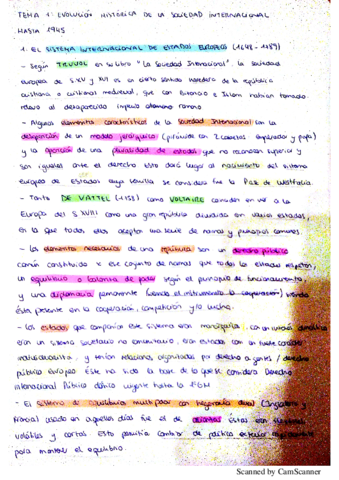 TEMA 1: EVOLUCIÓN HISTÓRICA DE LA SOCIEDAD INTERNACIONAL
HASTA 1945
1. EL SISTEMA INTERNACIONAL DE ESTADOS EUROPEOS (1648-1789)
- Según TRUYOL en su libro "La Sociedad Internacional", la sociedad
europea de S.XV y XVI es en cierto sentido heredera de la república
cristiana o cristiandad medieval, que con Bizancio e Islam habían tomado
relevo al desaparecido imperio romano
- Algunos elementos característicos de la Sociedad Internacional son la
desaparición de un modelo jerárquico (pirámide con 2 cabezas: emperador y papa)
y la aparición de una pluralidad de estados que no reconocen superior y
son iguales ante el derecho. Esto dará lugar al nacimiento del sistema
europeo de Estados cuya se considera fue la Paz de Westfalia.
- Tanto DE VATTEL (1758) como VOLTAIRE coinciden en ver a la
Europa del S.XVIII como una gran república dividida en varios estados,
en la que todos ellos aceptan una serie de normas y principios comunes
- Los elementos necesarios de una república son un derecho público
común constituido x ese conjunto de normas que todos los estados respetan,
un equilibrio o balanza de poder según el principio de funcionamiento,
y una diplomacia permanente (siendo el instrumento la cooperación)
está presente en la cooperación, competición y la lucha.
- Los estados que componían este sistema eran monarquías, con un
era un sistema societario no comunitario, eran estados con un fuerte carácter
individualista, y tenían relaciones organizadas por derecho de gentes / derecho
público europeo. Este ha sido la base de lo que se considera Derecho
Internacional Público clásico vigente hasta la IGM
- El sistema de equilibrio multipolar con hegemonía dual (Inglaterra y
Francia) usado en aquellos días fue el de alianzas. Estas eran
volátiles y cortas. Esto permitía cambiar de política exterior
para mantener el equilibrio.
Scanned by CamScanner